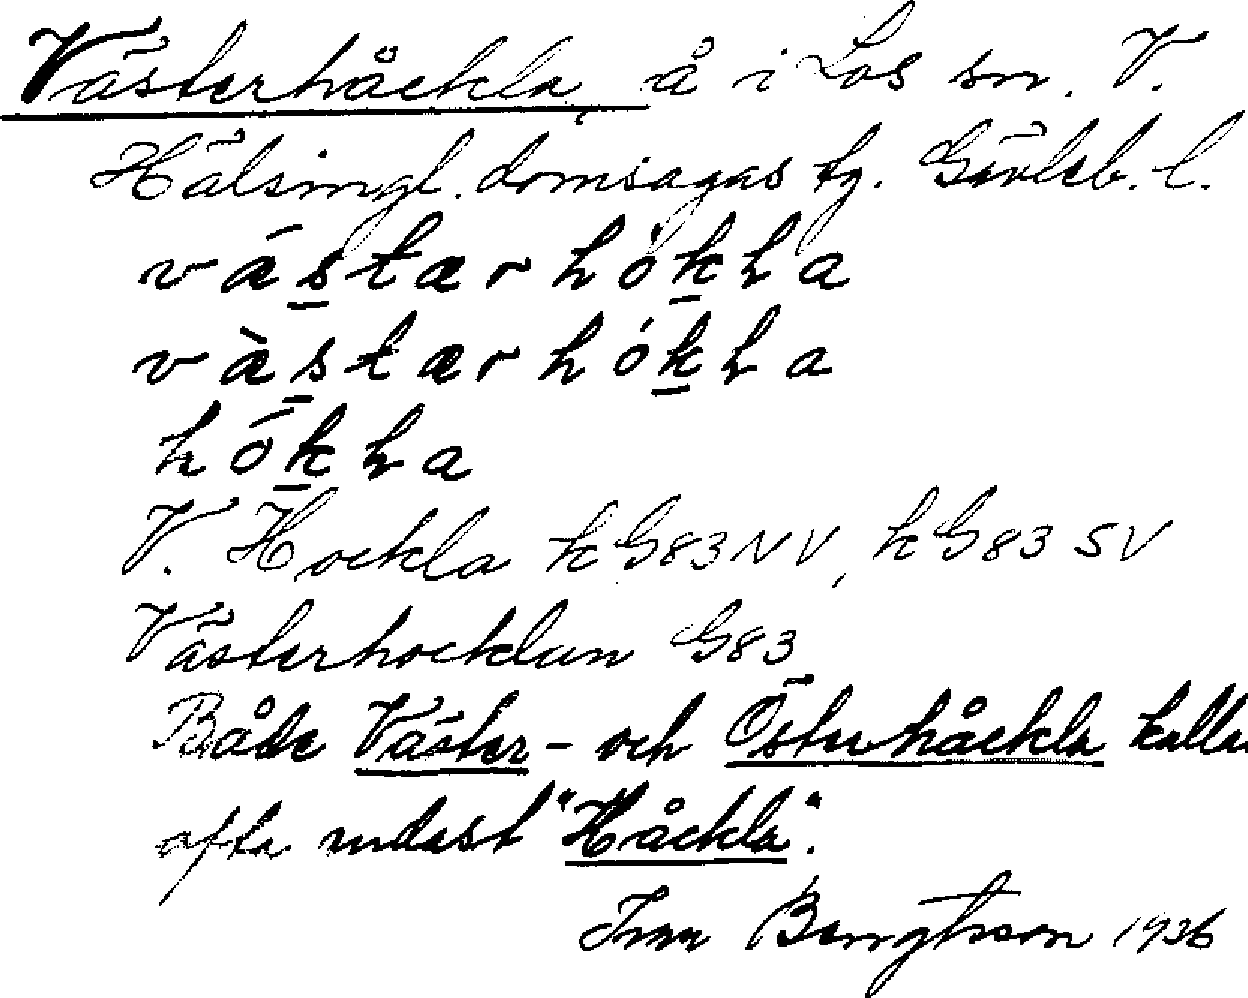 Västerhåckla, å i Los sn. V.
Hälsingl. domsagas tg. Gävleb. l.
västærhókla
væ̀stærhókla
hókla
V. Hockla k G83NV, k G83 SV
Västerhocklan G83
Både Väster- och Österhåckla kallas
ofta endast "Håckla".
Ivan Bengtsson 1936